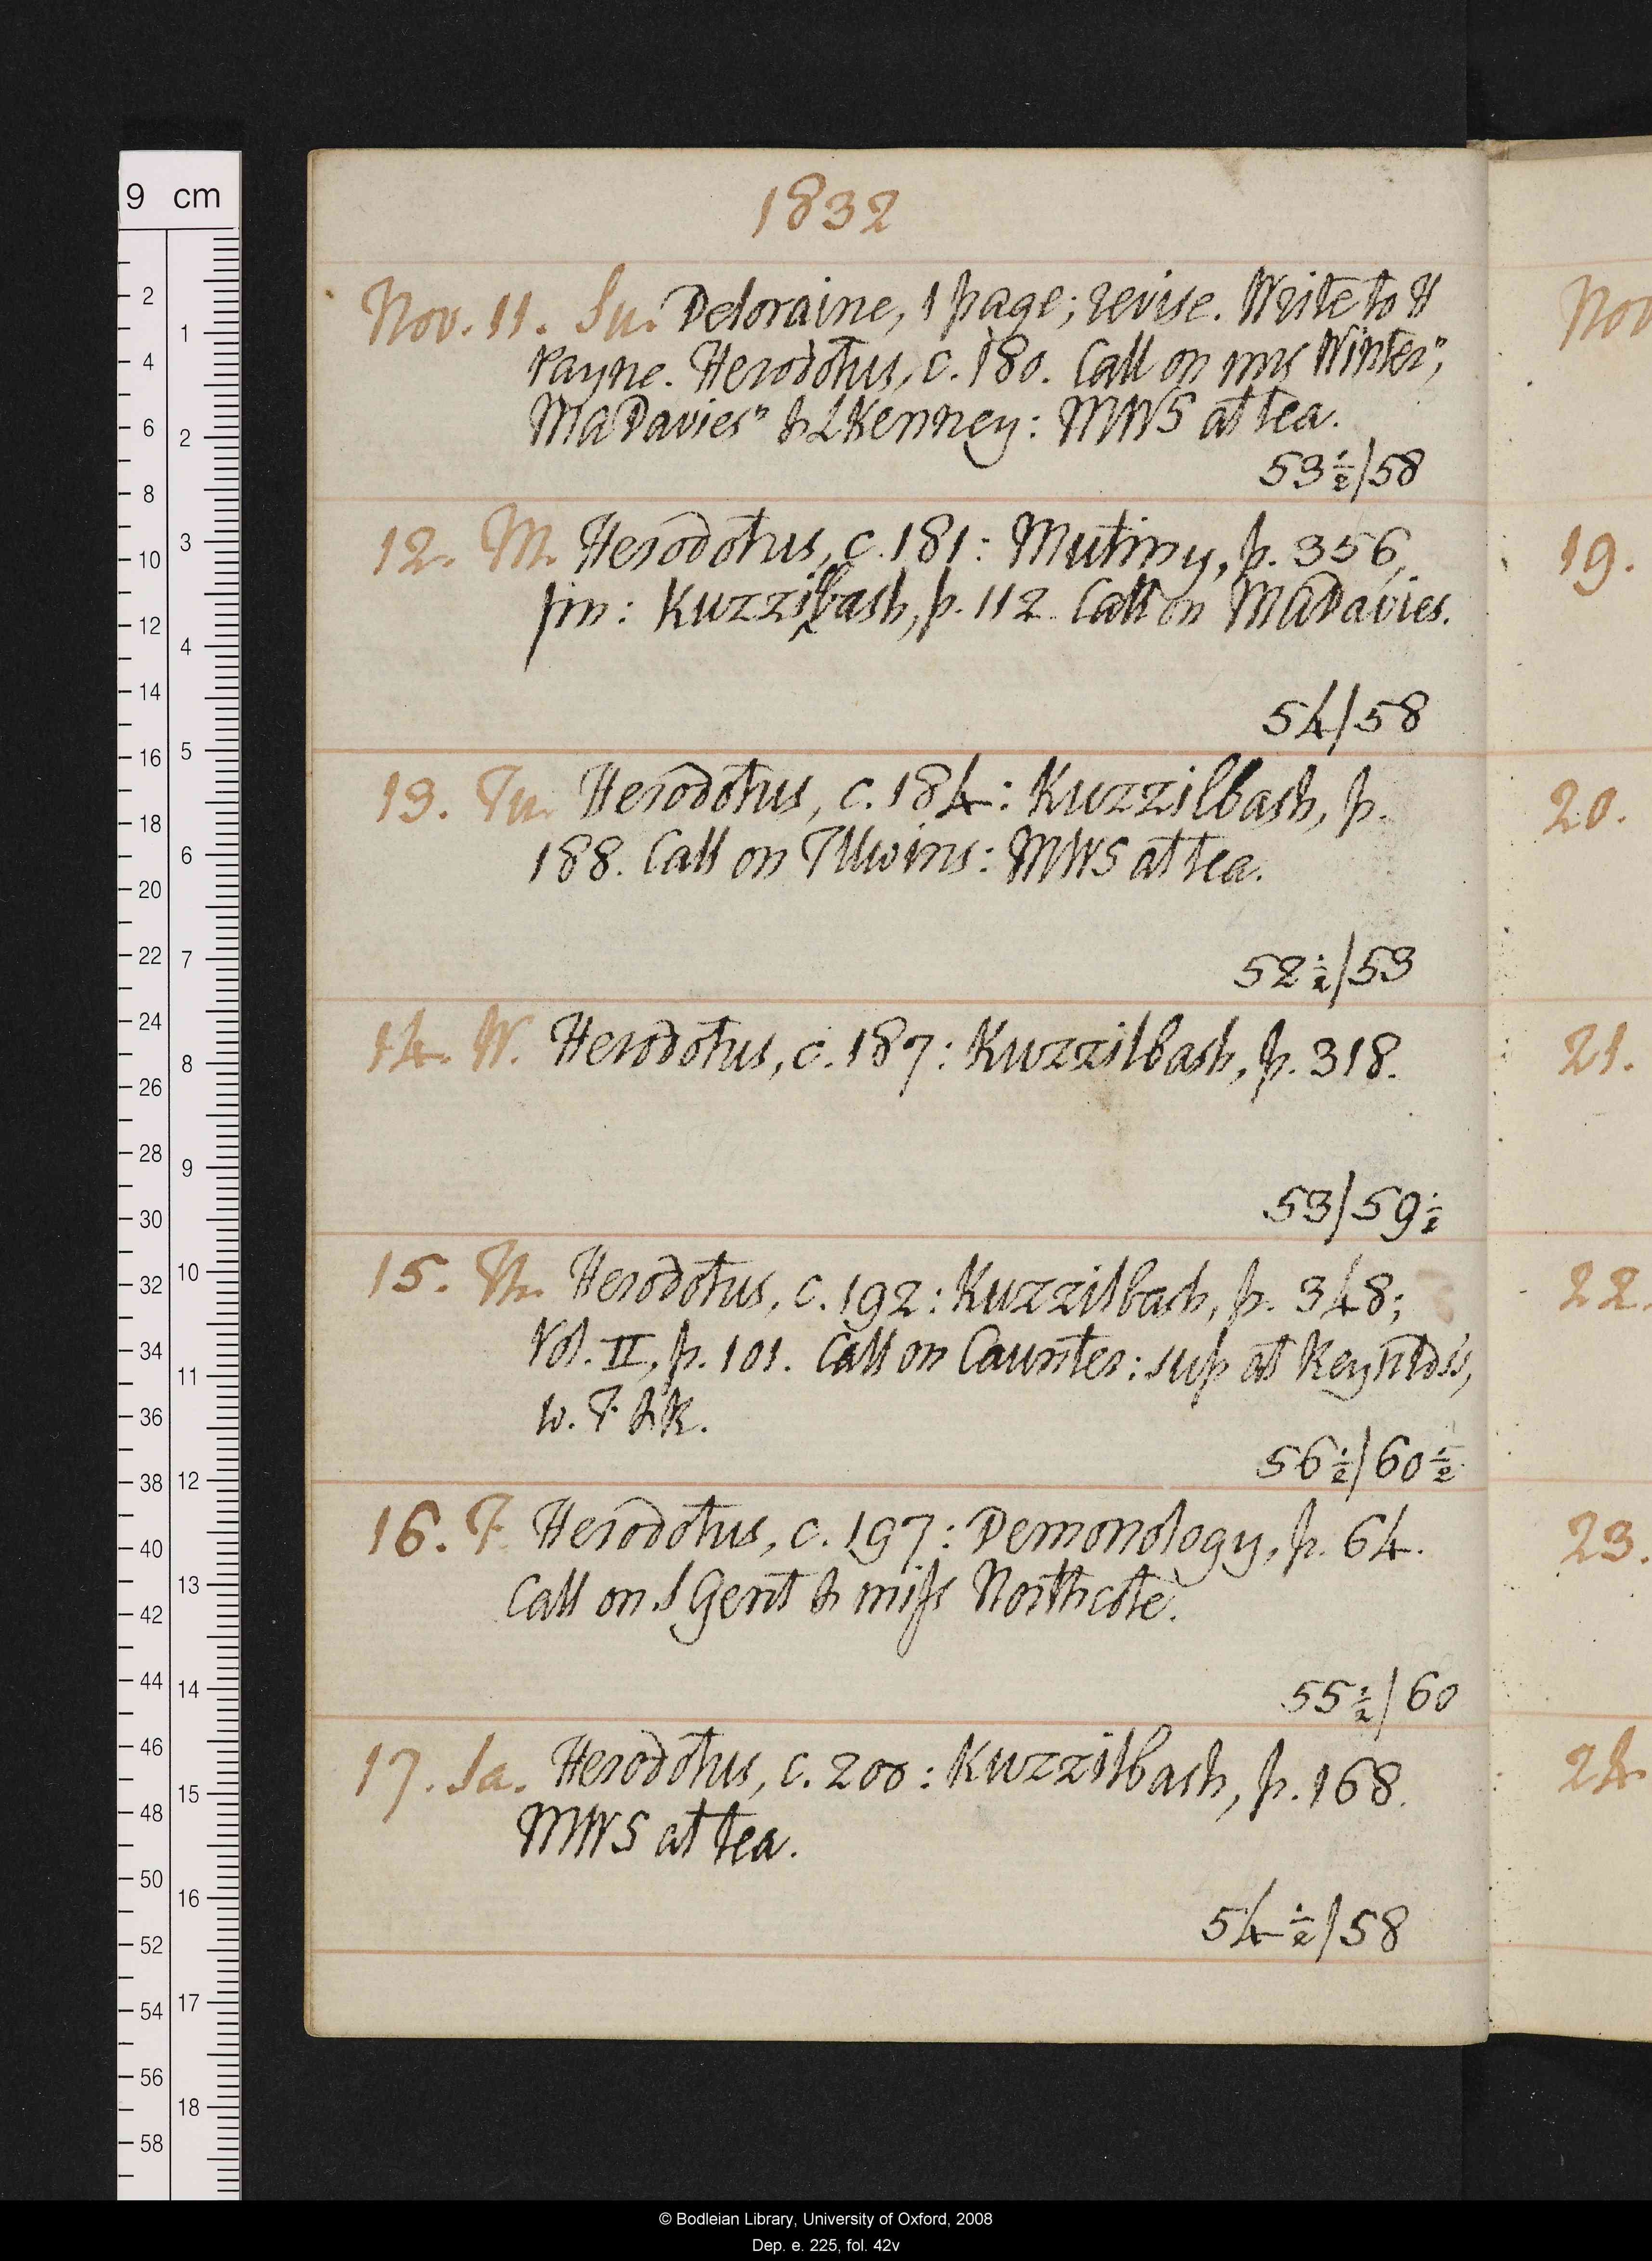 1832
Nov. 11. Su. Deloraine, 1 page; revise. Write to H
Payne. Herodotus, c. 180. Call on mrs Winter*,
MADavies* & LKenney: MWS at tea.
53½/58
12. M. Herodotus, c. 181: Mutiny, p. 356,
fin: Kuzzilbash, p. 112. Call on MADavies.
54/58
13. Tu. Herodotus, c. 184: Kuzzilbash, p.
188. Call on TUwins: MWS at tea.
52½/53
14. W. Herodotus, c. 187: Kuzzilbash, p. 318.
53/59½
15. Th. Herodotus, c. 192: Kuzzilbash, p. 348;
Vol. II, p. 101. Call on Caunter: sup at Reynlds's,
w. F & K.
56½/60½
16. F. Herodotus, c. 197: Demonology, p. 64.
Call on J Gent & miss Northcote.
55½/60
17. Sa. Herodotus, c. 200: Kuzzilbash, p. 168.
MWS at tea.
54½/58
Nov
19.
20.
21.
22.
23.
24
9 cm
2
4
6
8
10
12
14
16
18
20
22
24
26
28
30
32
34
36
38
40
42
44
46
48
50
52
54
56
58
1
2
3
4
5
6
7
8
9
10
11
12
13
14
15
16
17
18
© Bodleian Library, University of Oxford, 2008
Dep. e. 225, fol. 42v